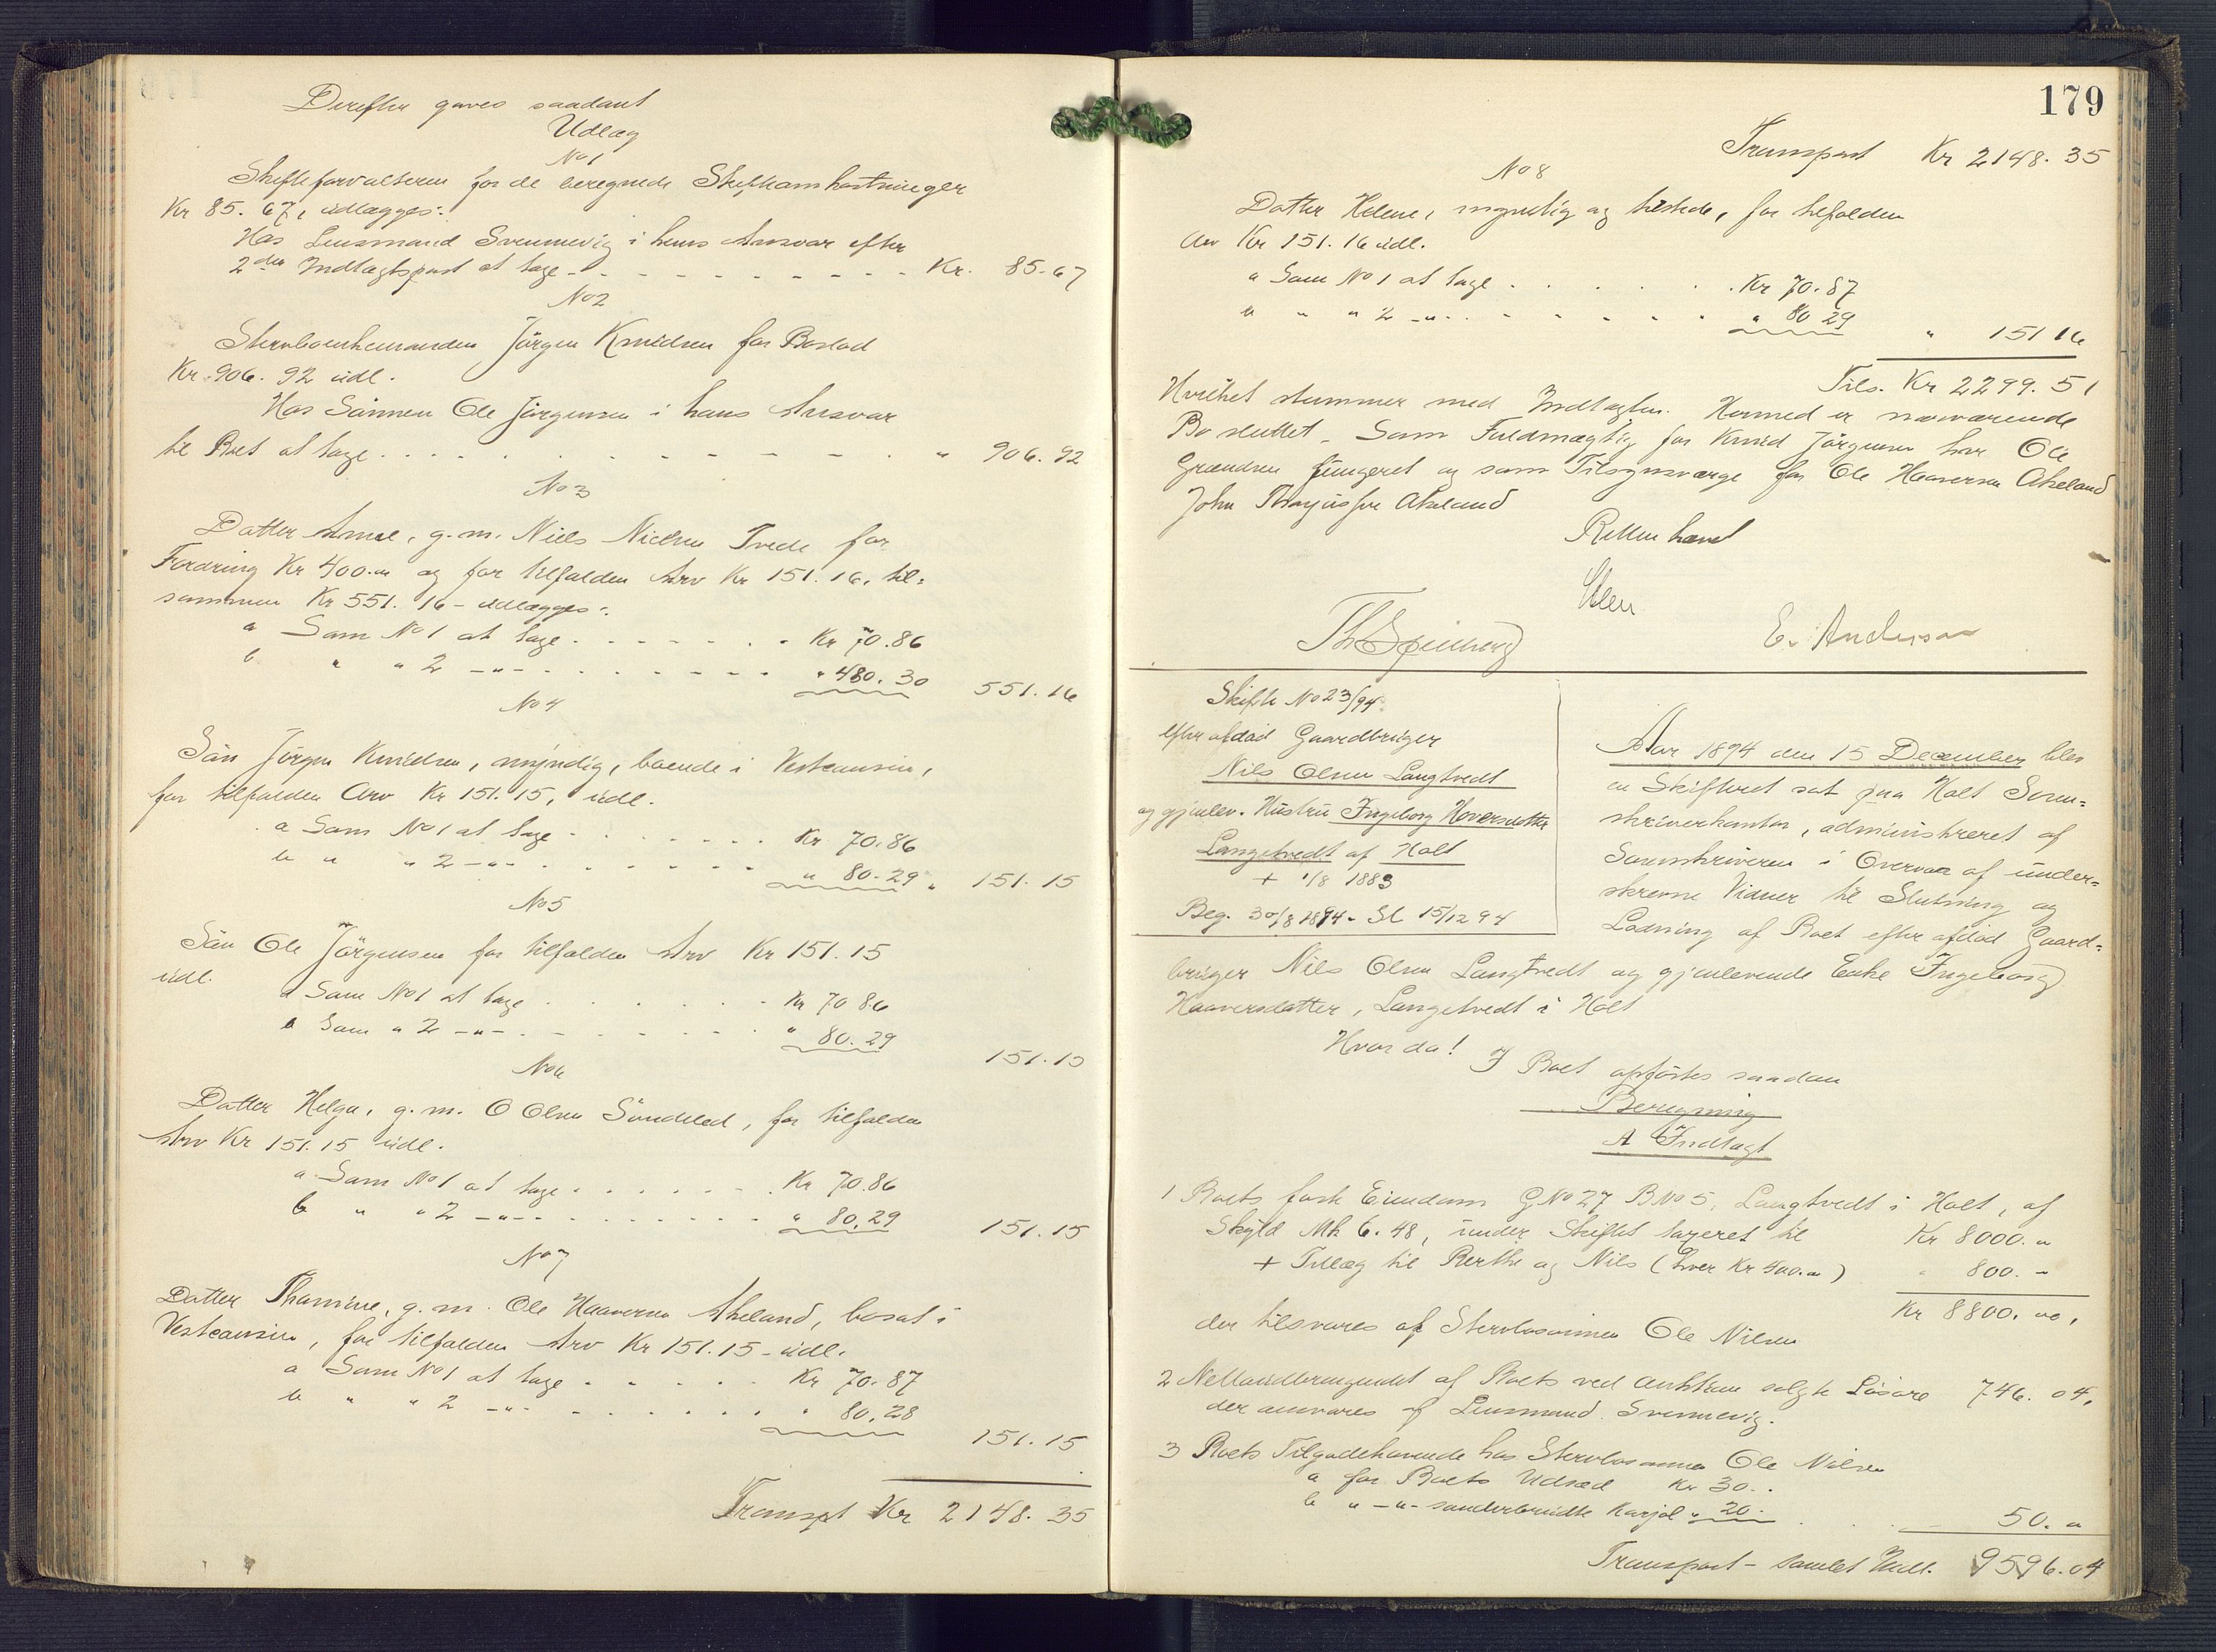 Derefter gaves saadant
Udlæg
No 1
Skifteforvalteren for de beregnede Skifteomkostninger
Kr 85. 67, udlægges:
Hos Lensmand Svennevig i hans Ansvar efter
2den Indtægtspost at tage - - - - Kr. 85-67
No 2
Stervboenkemanden Jörgen Knudsen for Boslod
Kr. 906. 92 udl.
Hos Sönnen Ole Jörgensen i hans Ansvar
til Boet at tage . . . . " 906. 92
No 3
Datter Anne, g. m. Niels Nielsen Tvede for
Fordring Kr 400." og for tilfalden Arv Kr 151. 16, til=
sammen Kr 551. 16 - udlægges:
a Som No 1 at tage - - - Kr 70.86
b " " 2 -"- - - - " 480. 30 551. 16
No 4
Sön Jörgen Knudsen, myndig, boende i Vestcausin,
for tilfalden Arv Kr 151. 15, udl.
a Som No 1 at tage - - - Kr 70.86
b " " 2 -"- . . . " 80.29 " 151. 15
No 5
Sön Ole Jörgensen for tilfalden Arv Kr 151. 15
udl.
a Som No 1 at tage . . . Kr 70 86
b Som " 2 -"- . . . " 80. 29
151. 15
No 6
Datter Helga, g. m. O Olsen Söndeled, for tilfalden
Arv Kr 151. 15 udl.
a Som No 1 at tage . . . Kr 70.86
b " " 2 -"- . . . " 80, 29 151. 15
No 7
Datter Thomine, g. m. Ole Haaversen Akeland, bosat i
Vestcausin, for tilfalden Arv Kr 151. 15 - udl.
a Som No 1 at tage - - - Kr 70. 87
b " " 2 -"- . . . " 80, 28
151. 15
Transpt Kr 2148. 35
179
Transport Kr 2148. 35
No 8
Datter Helene, myndig og tilstede, for tilfalden
Arv Kr 151. 16 udl.
a Som No 1 at tage . . . Kr 70. 87
b " " 2 -"- . . . " 80 29
" 151 16
Tils. Kr 2299. 51
Hvilket stemmer med Indtægten. Hermed er nærværende
Bo sluttet. Som Fuldmægtig for Knud Jörgensen har Ole
Grændsen fungeret og som Tilsynsværge for Ole Haaversen Akeland
John Akeland
Retten hævet
E. Anderson
Skifte No 23/94
efter afdöd Gaardbruger
Nils Olsen Langtvedt
og gjenlev. Hustru Ingeborg Hoversdatter
Langetvedt af Holt
+ 1/8 1883
Beg. 30/8 1894 - Sl 15/12 94
Aar 1894 den 15 December blev
en Skifteret sat paa Holt Soren=
skriverkontor, administreret af
Sorenskriveren i Overvær af under=
skrevne Vidner til Slutning og
Lodning af Boet efter afdöd Gaard=
bruger Nils Olsen Langtvedt og gjenlevende Enke Ingeborg
Haaversdatter, Langetvedt i Holt
Hvor da!
I Boet opförtes saadan
Beregning
A Indtægt
1 Boets faste Eiendom G No 27 B No 5, Langtvedt i Holt, af
Skyld Mk 6. 48, under Skiftet taxeret til Kr 8000. "
+ Tillæg til Berthe og Nils (hver Kr 400.") 800. -
Kr 8800. 00,
der tilsvares af Stervbosönnen Ole Nilsen
2 Nettoudbringendet af Boets ved Auktion solgte Lösöre 746. 04,
der ansvares af Lensmand Svennevig.
3 Boets Tilgodehavende hos Stervbosönnen Ole Nilsen
a for Boets Udsæd Kr 30..
b " -"- sönderbrudte Karjol " 20.
50. "
Transport - samlet Indt. 9596.04